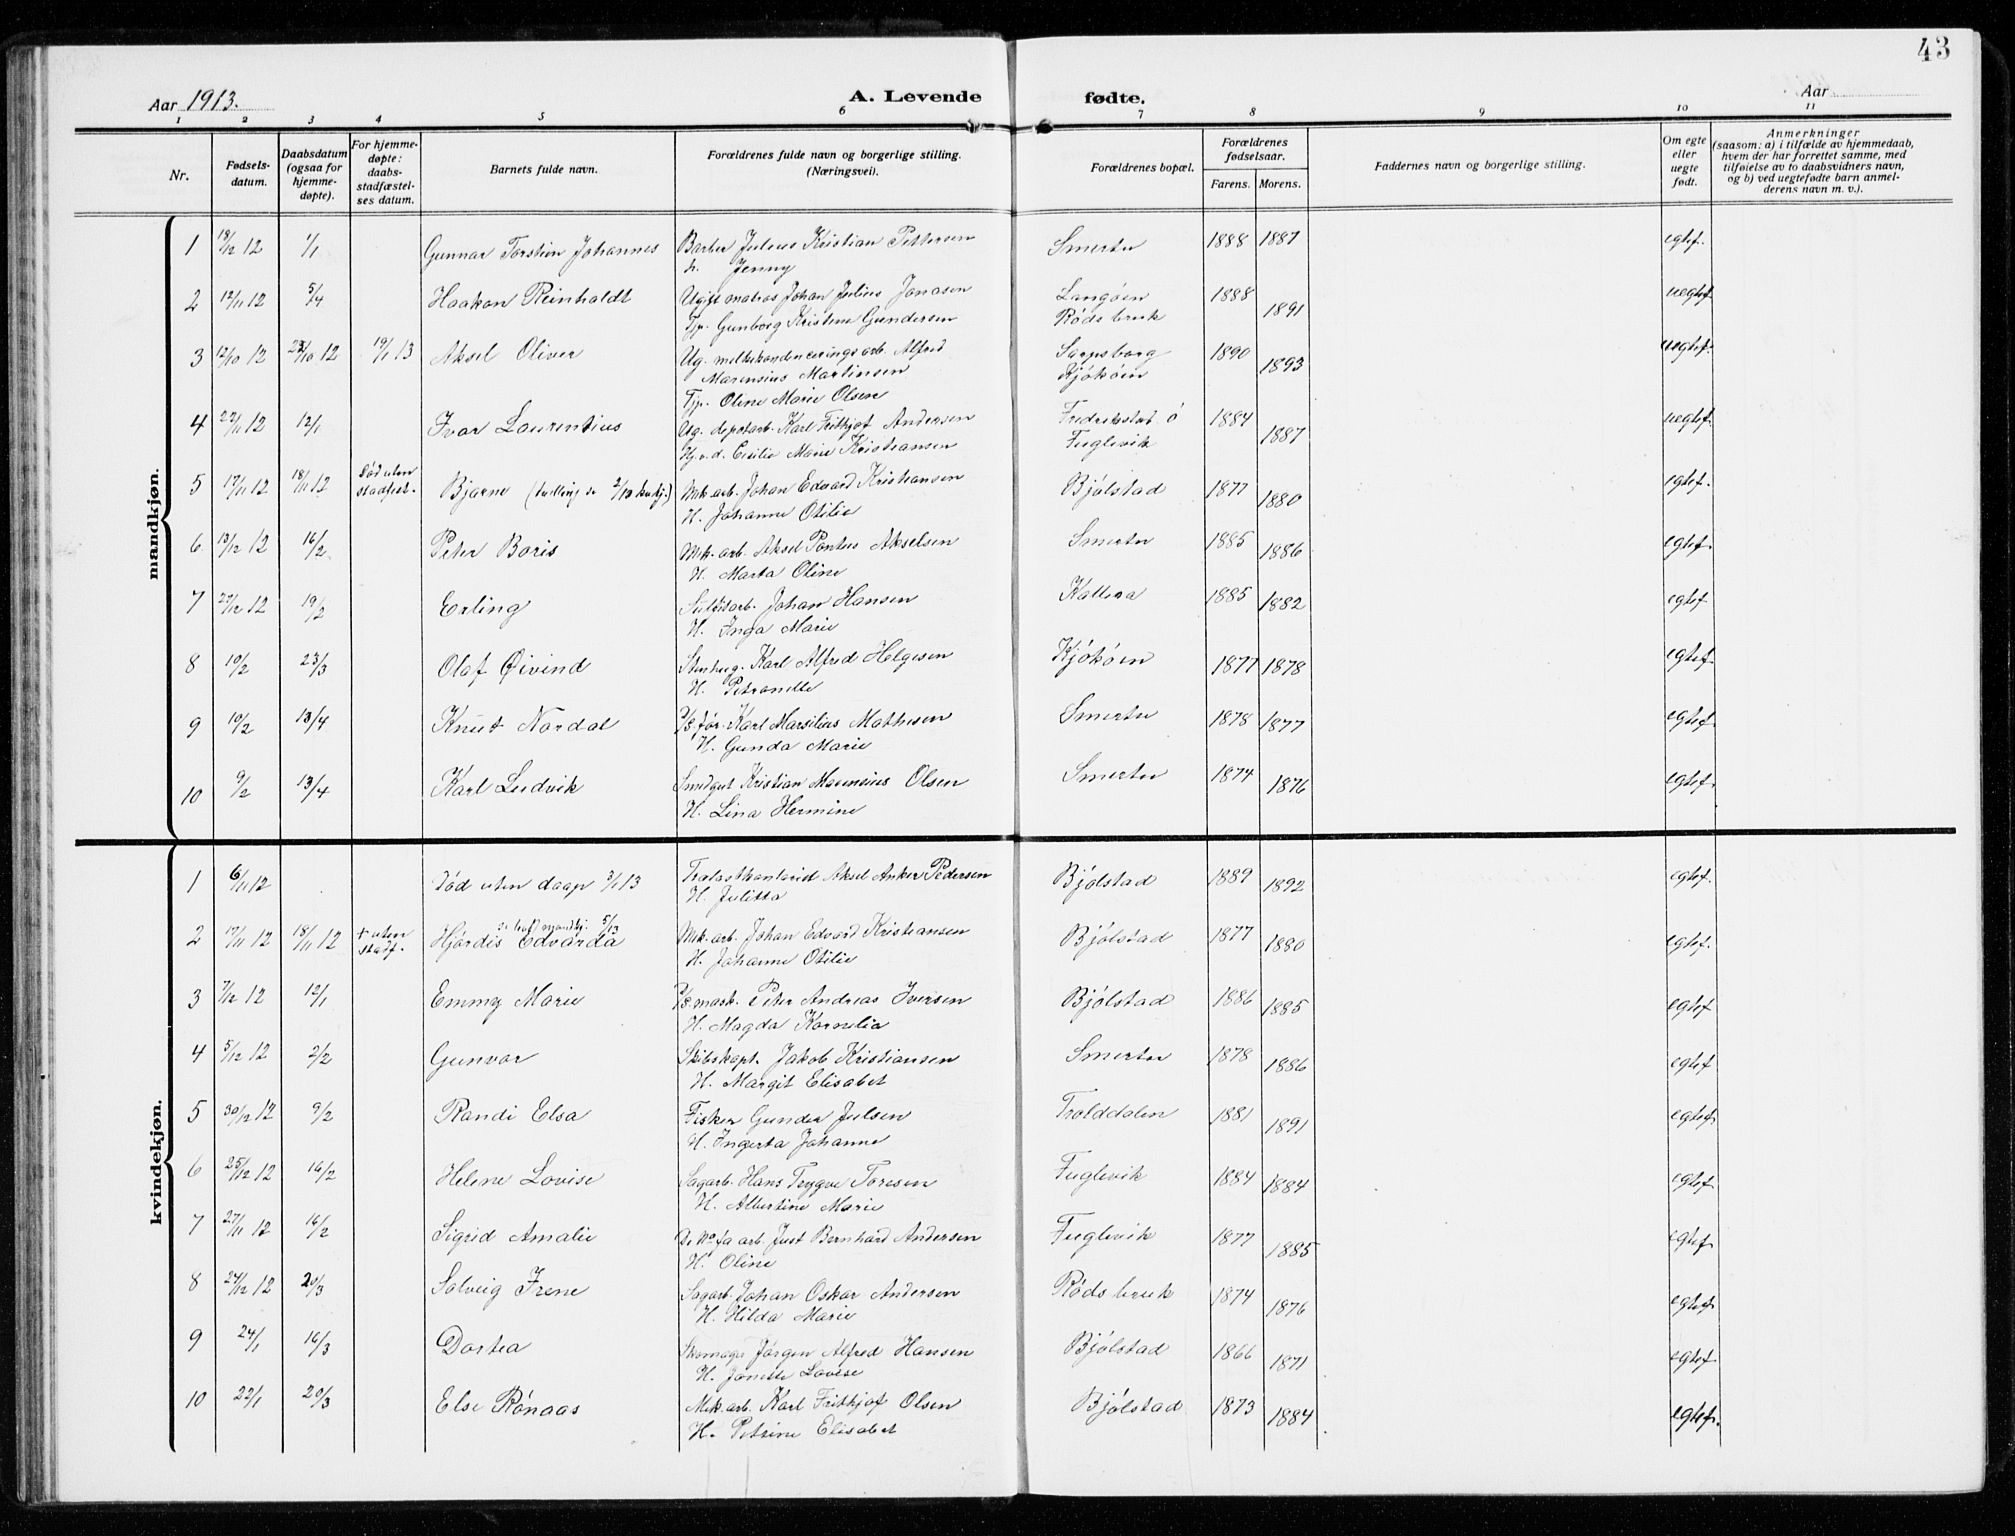 43
Aar 1913.
A. Levende fødte.
Aar
1 2 3 4 5 6 7 8 9 10 11
Nr.
Fødsels-
datum.
Daabsdatum
(ogsaa for
hjemme-
døpte).
For hjemme-
døpte:
daabs-
stadfæstel-
ses datum.
Barnets fulde navn.
Forældrenes fulde navn og borgerlige stilling.
(Næringsvei).
Forældrenes bopæl.
Forældrenes
fødselsaar.
Farens. Morens.
Faddernes navn og borgerlige stilling.
Om egte
eller
uegte
født.
Anmerkninger
(saasom: a) i tilfælde av hjemmedaab,
hvem der har forrettet samme, med
tilføielse av to daabsvidners navn,
og b) ved uegtefødte barn anmel-
derens navn m. v.).
mandkjøn.
1 18/12 12 1/1 Gunnar Torstein Johannes Barber Julius Kristian Pettersen Smertu 1888 1887 egtef.
h. Jenny
2 12/11 12 5/4 Haakon Reinholdt Ugift matros Johan Julius Jonasen Langøen 1888 1891 uegtef.
Tjp. Gunborg Kristine Gundersen Røds bruk
3 12/10 12 23/10 12 19/1 13 Aksel Oliver Ug. melkekondenceringsarb. Alfred Sarpsborg 1890 1893 uegtef.
Marensius Martinsen Kjøkøen
Tjp. Oline Marie Olsen
4 22/11 12 12/1 Ivar Laurentius Ug. depotarb. Karl Fritkjof Andersen Fredrikstad ø 1884 1887 uegtef.
Hj.v.d. Cecilie Marie Kristiansen Fuglevik
5 17/11 12 18/11 12 Død uten stadfest. Bjarne (tvilling se 2/13 kvkj.) Mek. arb. Johan Edvard Kristiansen Bjølstad 1877 1880 egtef.
H. Johanne Otilie
6 13/12 12 16/2 Peter Boris Mek. arb. Aksel Pontus Akselsen Smertu 1885 1886 egtef.
H. Marta Oline
7 27/12 12 19/2 Erling Johan Hansen Kallera 1885 1882 egtef
H. Inga Marie
8 10/2 23/3 Olaf Øivind Stenhug. Karl Alfred Helgesen Kjøkøen 1877 1878 egtef.
H. Petronelle
9 10/2 13/4 Knut Nordal Karl Marsilius Mathisen Smertu 1878 1877 egtef.
H. Gunda Marie
10 9/2 13/4 Karl Ludvik Kristian Olsen Smertu 1874 1876 egtef.
H. Lina Hermine
kvindekjøn.
1 6/11 12 Død uten daap 3/1 13 Aksel Anker Pedersen Bjølstad 1889 1892 egtef.
H. Julitta
2 17/11 12 18/11 12 † uten stadf. Hjørdis Edvarda se mandkj. 5/13 Mek. arb. Johan Edvard Kristiansen Bjølstad 1877 1880 egtef.
H. Johanne Otilie
3 7/12 12 12/1 Emmy Marie Peter Andreas Iversen Bjølstad 1886 1885 egtef
H. Magda Kornelia
4 5/12 12 2/2 Gunvor Skibskapt. Jakob Kristiansen Smertu 1878 1886 egtef.
H. Margit Elisabet
5 30/12 12 9/2 Randi Elsa Fisker Gunder Julsen Trolddalen 1881 1891 egtef.
H. Ingerta Johanne
6 25/12 12 16/2 Helene Lovise Sagarb. Hans Trygve Toresen Fuglevik 1884 1884 egtef.
H. Albertine Marie
7 27/11 12 16/2 Sigrid Amalie Just Bernhard Andersen Fuglevik 1877 1885 egtef
H. Oline
8 24/12 12 20/3 Solveig Irene Sagarb. Johan Oskar Andersen Røds bruk 1874 1876 egtef
H. Hilda Marie
9 24/1 16/3 Dortea Skomager Jørgen Alfred Hansen Bjølstad 1866 1871 egtef
H. Janette Lovise
10 22/1 20/3 Else Rønaas Mek arb. Karl Fritkjof Olsen Bjølstad 1873 1884 egtef.
H. Petrine Elisabet